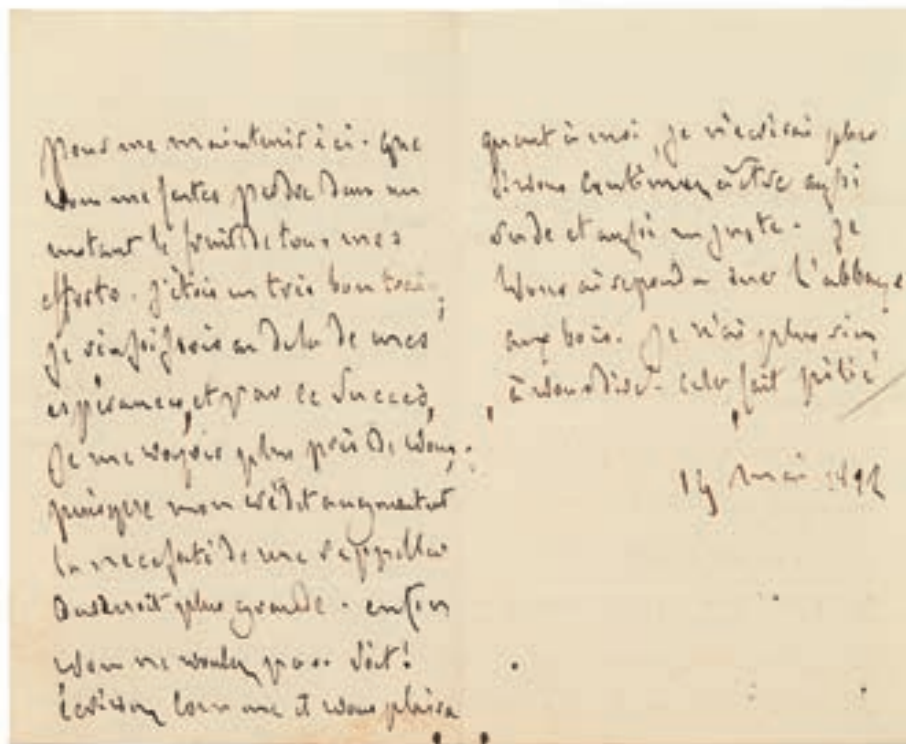 pour me maintenir ici. que
vous me faites perdre dans un
instant le fruit de tous mes
efforts. j'étois en très bon train;
je réussissois au delà de mes
espérances, et par ce succès,
je me voyois plus près de vous,
puisque mon crédit augmentant
la necessité de me rappeller
devenoit plus grande. enfin
vous ne voulez pas. soit!
écrivez comme il vous plaira
quant à moi, je n'écrirai plus
si vous continuez à être aussi
rude et aussi injuste. je
vous ai répondu sur l'abbaye
aux bois. je n'ai plus rien
à vous dire. cela fait pitié
14 mai